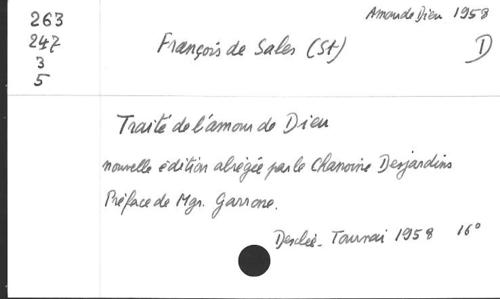 263
247
3
5
Amour de Dieu 1958
François de Sales (St)
D
Traité de l'amour de Dieu
nouvelle édition abrégée par le Chanoine Desjardins
Préface de Mgr. Garrone.
Desclée - Tournai 1958 16°